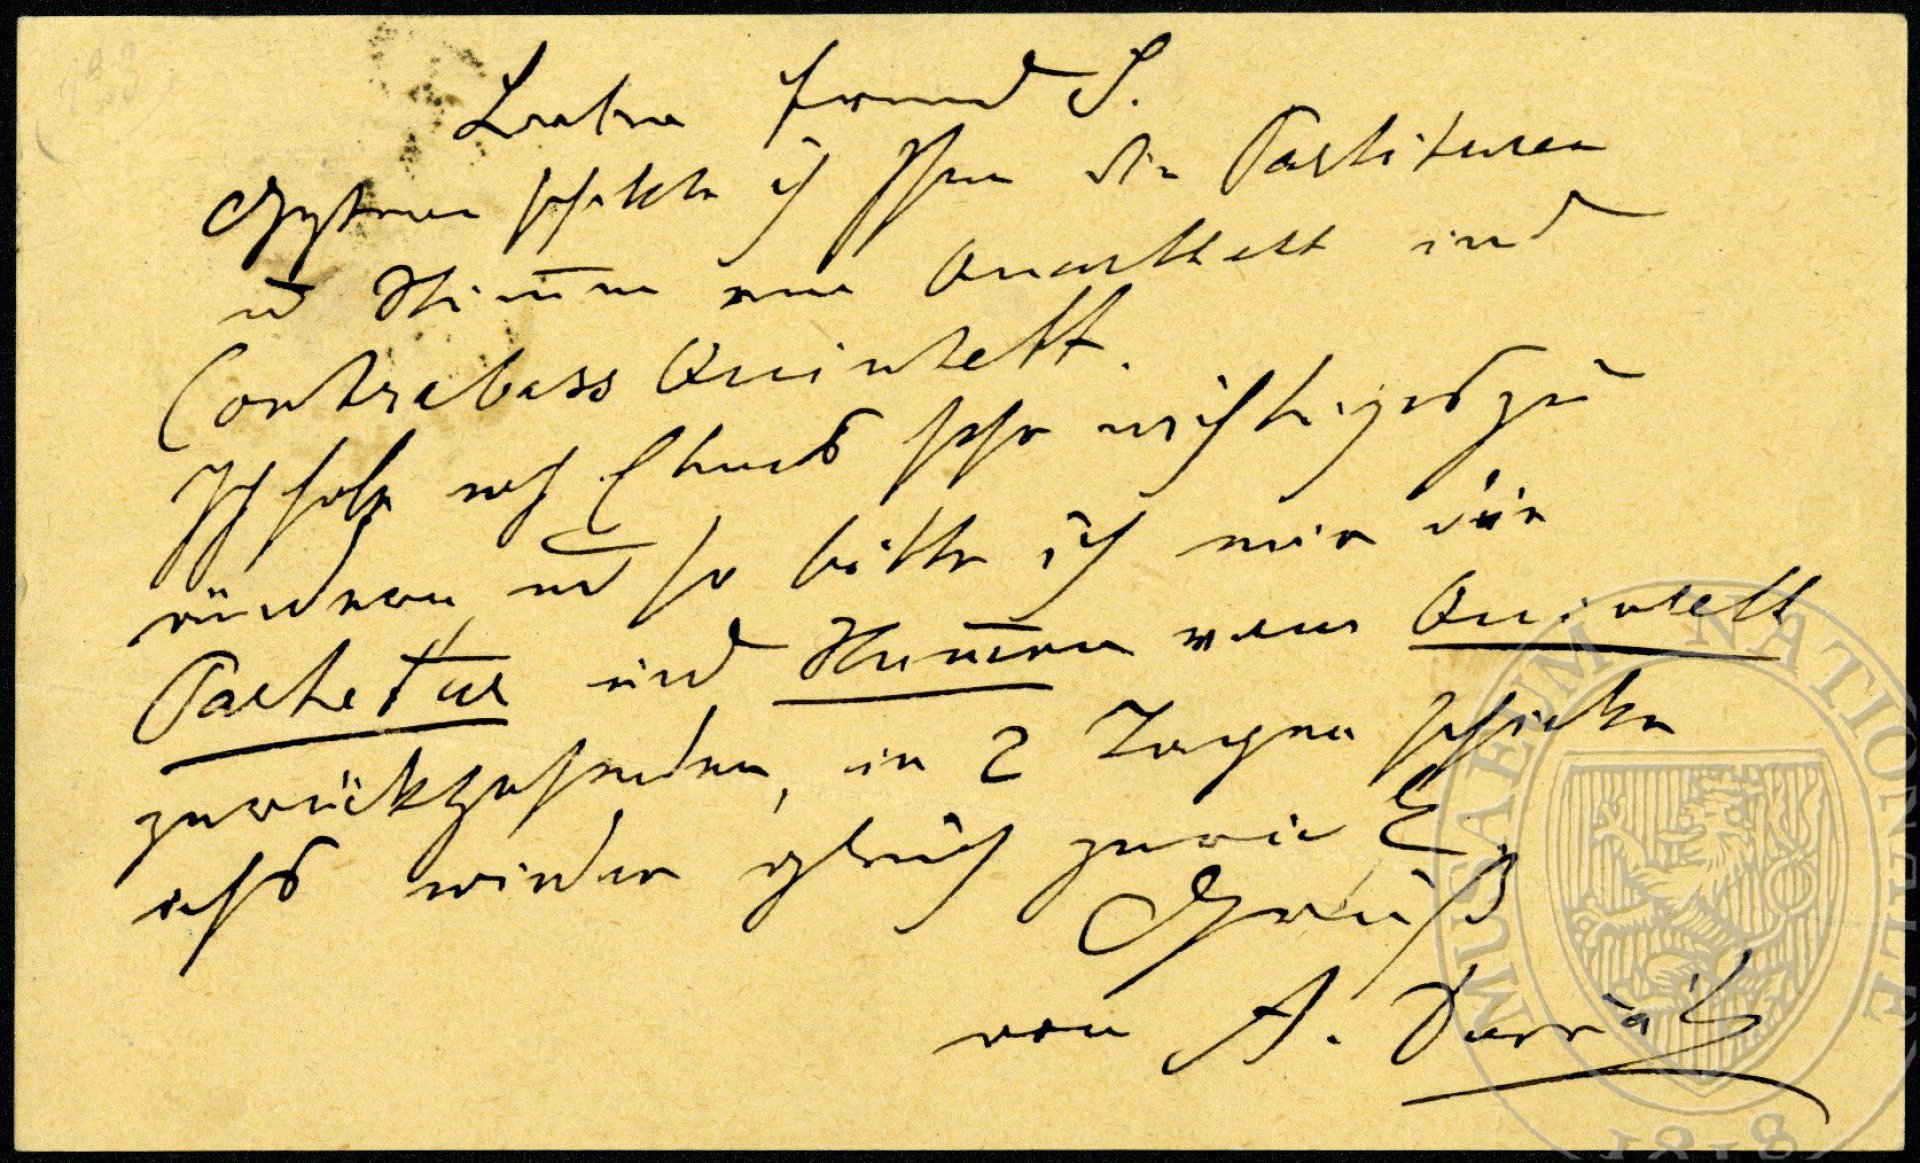 Lieber Freund S.
Gestern schickte ich Ihnen die Partituren
u Stimmen vom Quartett und
Contrabass Quintett.
Ich habe noch Etwas sehr wichtiges zu
ändern und so bitte ich mir die
Partitur und Stimmen vom Quintett
zurückzusenden, in 2 Tagen schicke
ichs wieder gleich zurück
Grüßt
von A. Dvořák
MUSAEUM NATIONALE
1818